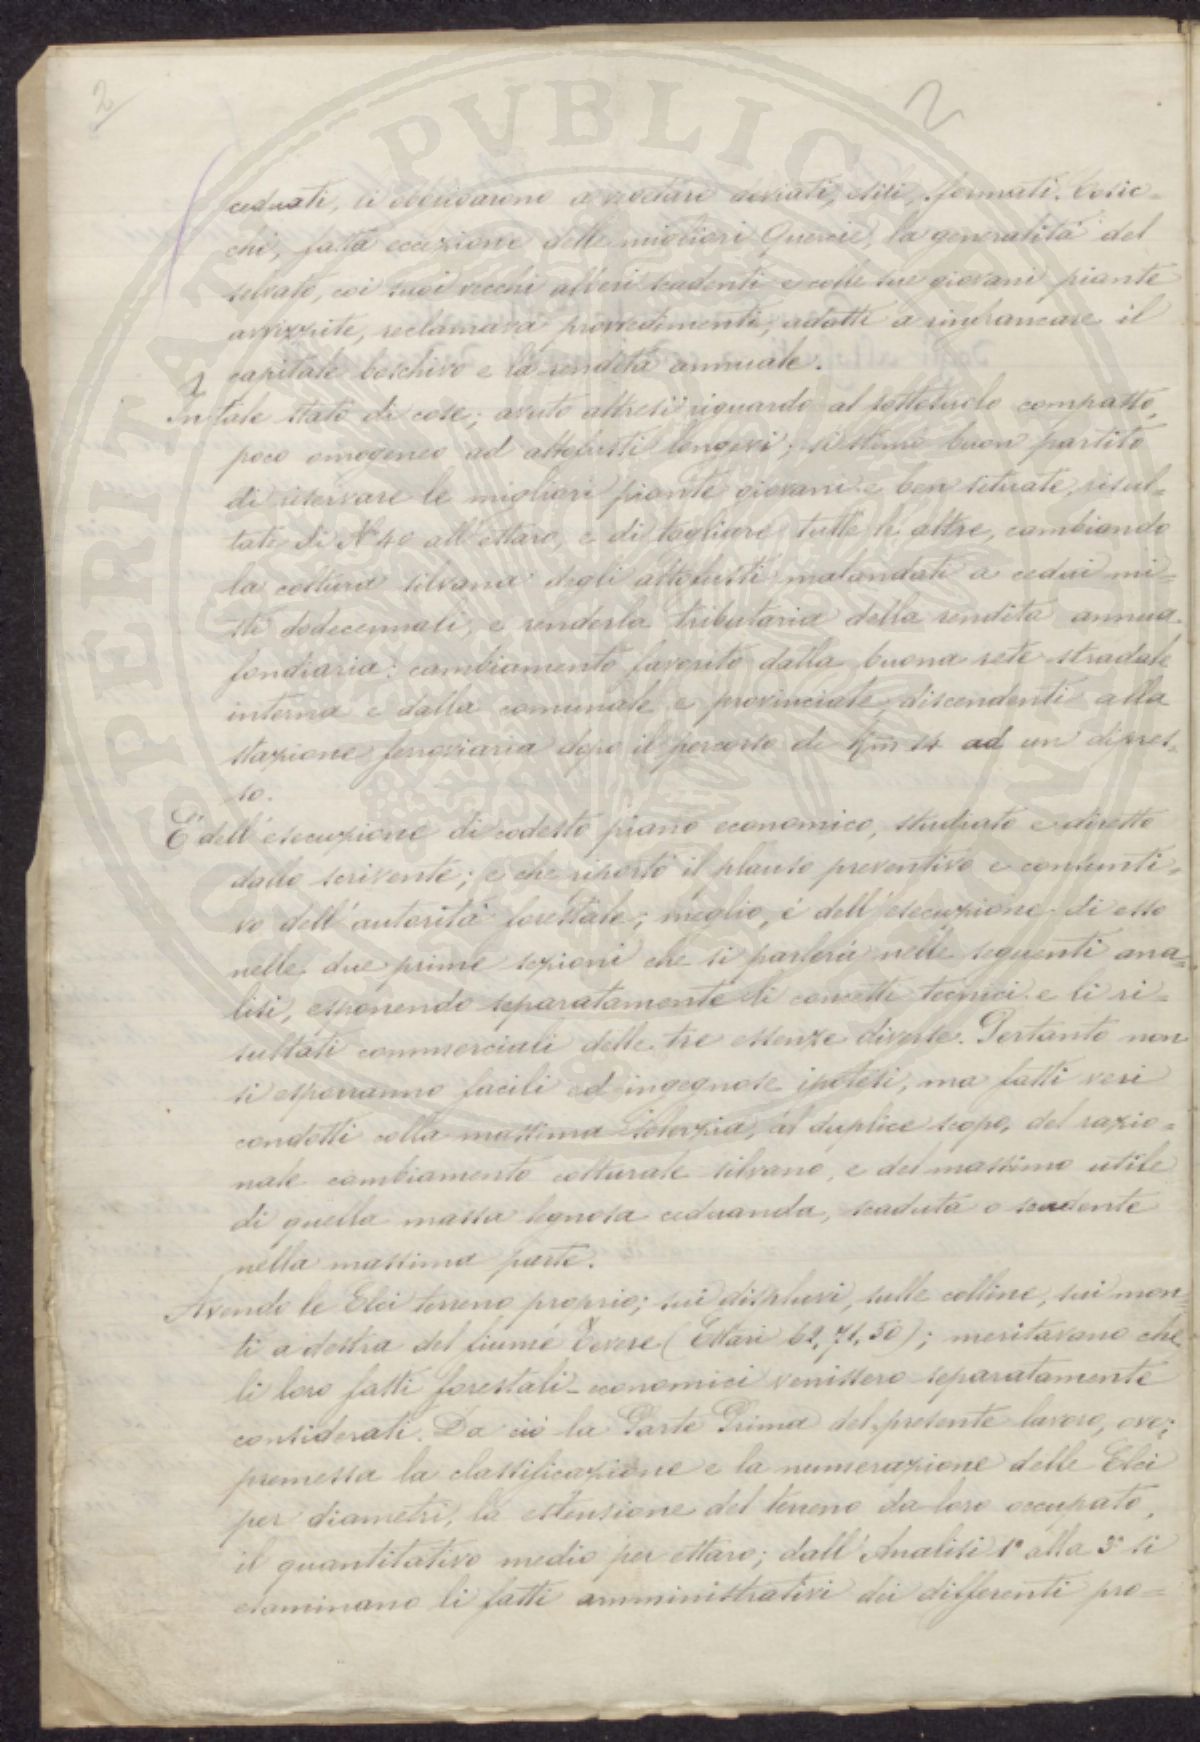 2
2
ceduati, si obbligarono a vegetare deviati, esili, sformati. Cosic=
chè, fatta eccezione delle migliori Quercie, la generalità del
selvato, coi suoi vecchi alberi scadenti e colle sue giovani piante
avvizzite, reclamava provvedimenti, adatti a rinfrancare il
capitale boschivo e la rendita annuale.
In tale stato di cose; avuto altresì riguardo al sottosuolo compatto,
poco omogeneo ad altofusti longevi; si stimò buon partito
di riservare le migliori piante giovani e ben situate, risul=
tate di N° 40 all'ettaro, e di tagliare tutte le altre, cambiando
la coltura silvana degli altofusti malandati a cedui mi=
sti dodecennali, e renderla tributaria della rendita annua
fondiaria: cambiamento favorito dalla buona rete stradale
interna e dalla comunale e provinciale discendenti alla
stazione ferroviaria dopo il percorso di Km 14 ad un dipres=
so.
È dell'esecuzione di codesto piano economico, studiato e diretto
dallo scrivente; e che riportò il plauso preventivo e consunti=
vo dell'autorità forestale; meglio, è dell'esecuzione di esso
nelle due prime sezioni che si parlerà nelle seguenti ana=
lisi, esponendo separatamente li concetti tecnici e li ri=
sultati commerciali delle tre essenze diverse. Pertanto non
si esporranno facili ed ingegnose ipotesi, ma fatti veri
condotti colla massima solerzia, al duplice scopo, del razio=
nale cambiamento colturale silvano, e del massimo utile
di quella massa legnosa ceduanda, scaduta o scadente
nella massima parte.
Avendo le Elci terreno proprio; sui displuvi, sulle colline, sui mon=
ti a destra del fiume Tevere (Ettari 62,71,50); meritavano che
li loro fatti forestali-economici venissero separatamente
considerati. Da ciò la Parte Prima del presente lavoro, ove;
premessa la classificazione e la numerazione delle Elci
per diametri, la estensione del terreno da loro occupato,
il quantitativo medio per ettaro; dall'Analisi 1ª alla 3ª si
esaminano li fatti amministrativi dei differenti pro=
COSPERITATI PUBLICAE